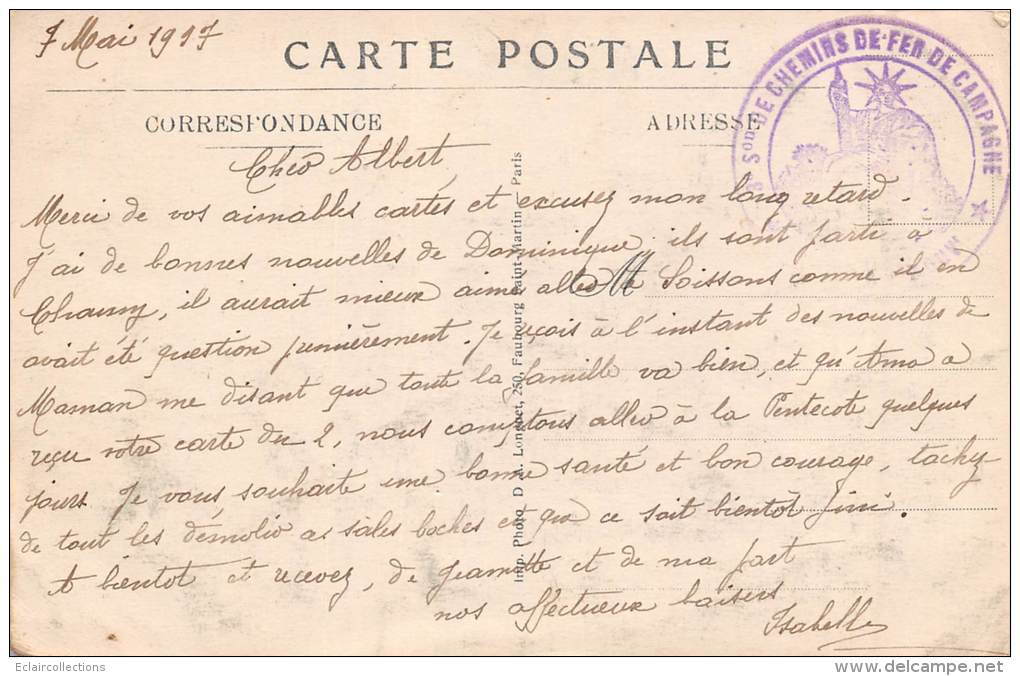 7 Mai 1917
CARTE POSTALE
Son DE CHEMINS DE FER DE CAMPAGNE
CORRESPONDANCE
ADRESSE
Cher Albert,
Merci de vos aimables cartes et excusez mon long retard.
J'ai de bonnes nouvelles de Dominique, ils sont parti à
Chauny, il aurait mieux aimé aller à Soissons comme il en
avait été question premièrement. Je reçois à l'instant des nouvelles de
Maman me disant que toute la famille va bien, et qu' a
reçu votre carte du 2, nous comptons aller à la Pentecote quelques
jours. Je vous souhaite une bonne santé et bon courage, tachez
de tout les démolir as sales boches et que ce soit bientôt fini.
A bientot et recevez, de Jeannette et de ma part
nos affectueux baisers
Isabelle
Imp. Photo. D. A. Longuet, 250, Faubourg Saint-Martin - Paris
Eclaircollections
www.delcampe.net